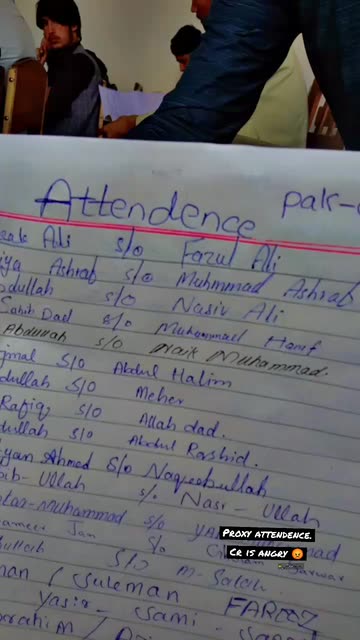 Attendence pak-
Ali s/o Fazul Ali
Ashrab s/o Muhmmad Ashrab
dullah s/o Nasir Ali
Sahib Dad s/o Muhammad Hanif
Abdullah s/o Malik Muhammad.
jmal S/o Abdul Halim
dullah S/o Meher
Rafiq s/o Allah dad.
dullah s/o Abdul Rashid.
yan Ahmed S/o Naqeebullah
ab-Ullah s/o Nasr-Ullah
Muhammad s/o
Jan s/o
ullah S/o M-Salah
man / Suleman FAROOZ
Yasir - Sami -
brahim /
Proxy attendence.
Cr is angry 😡